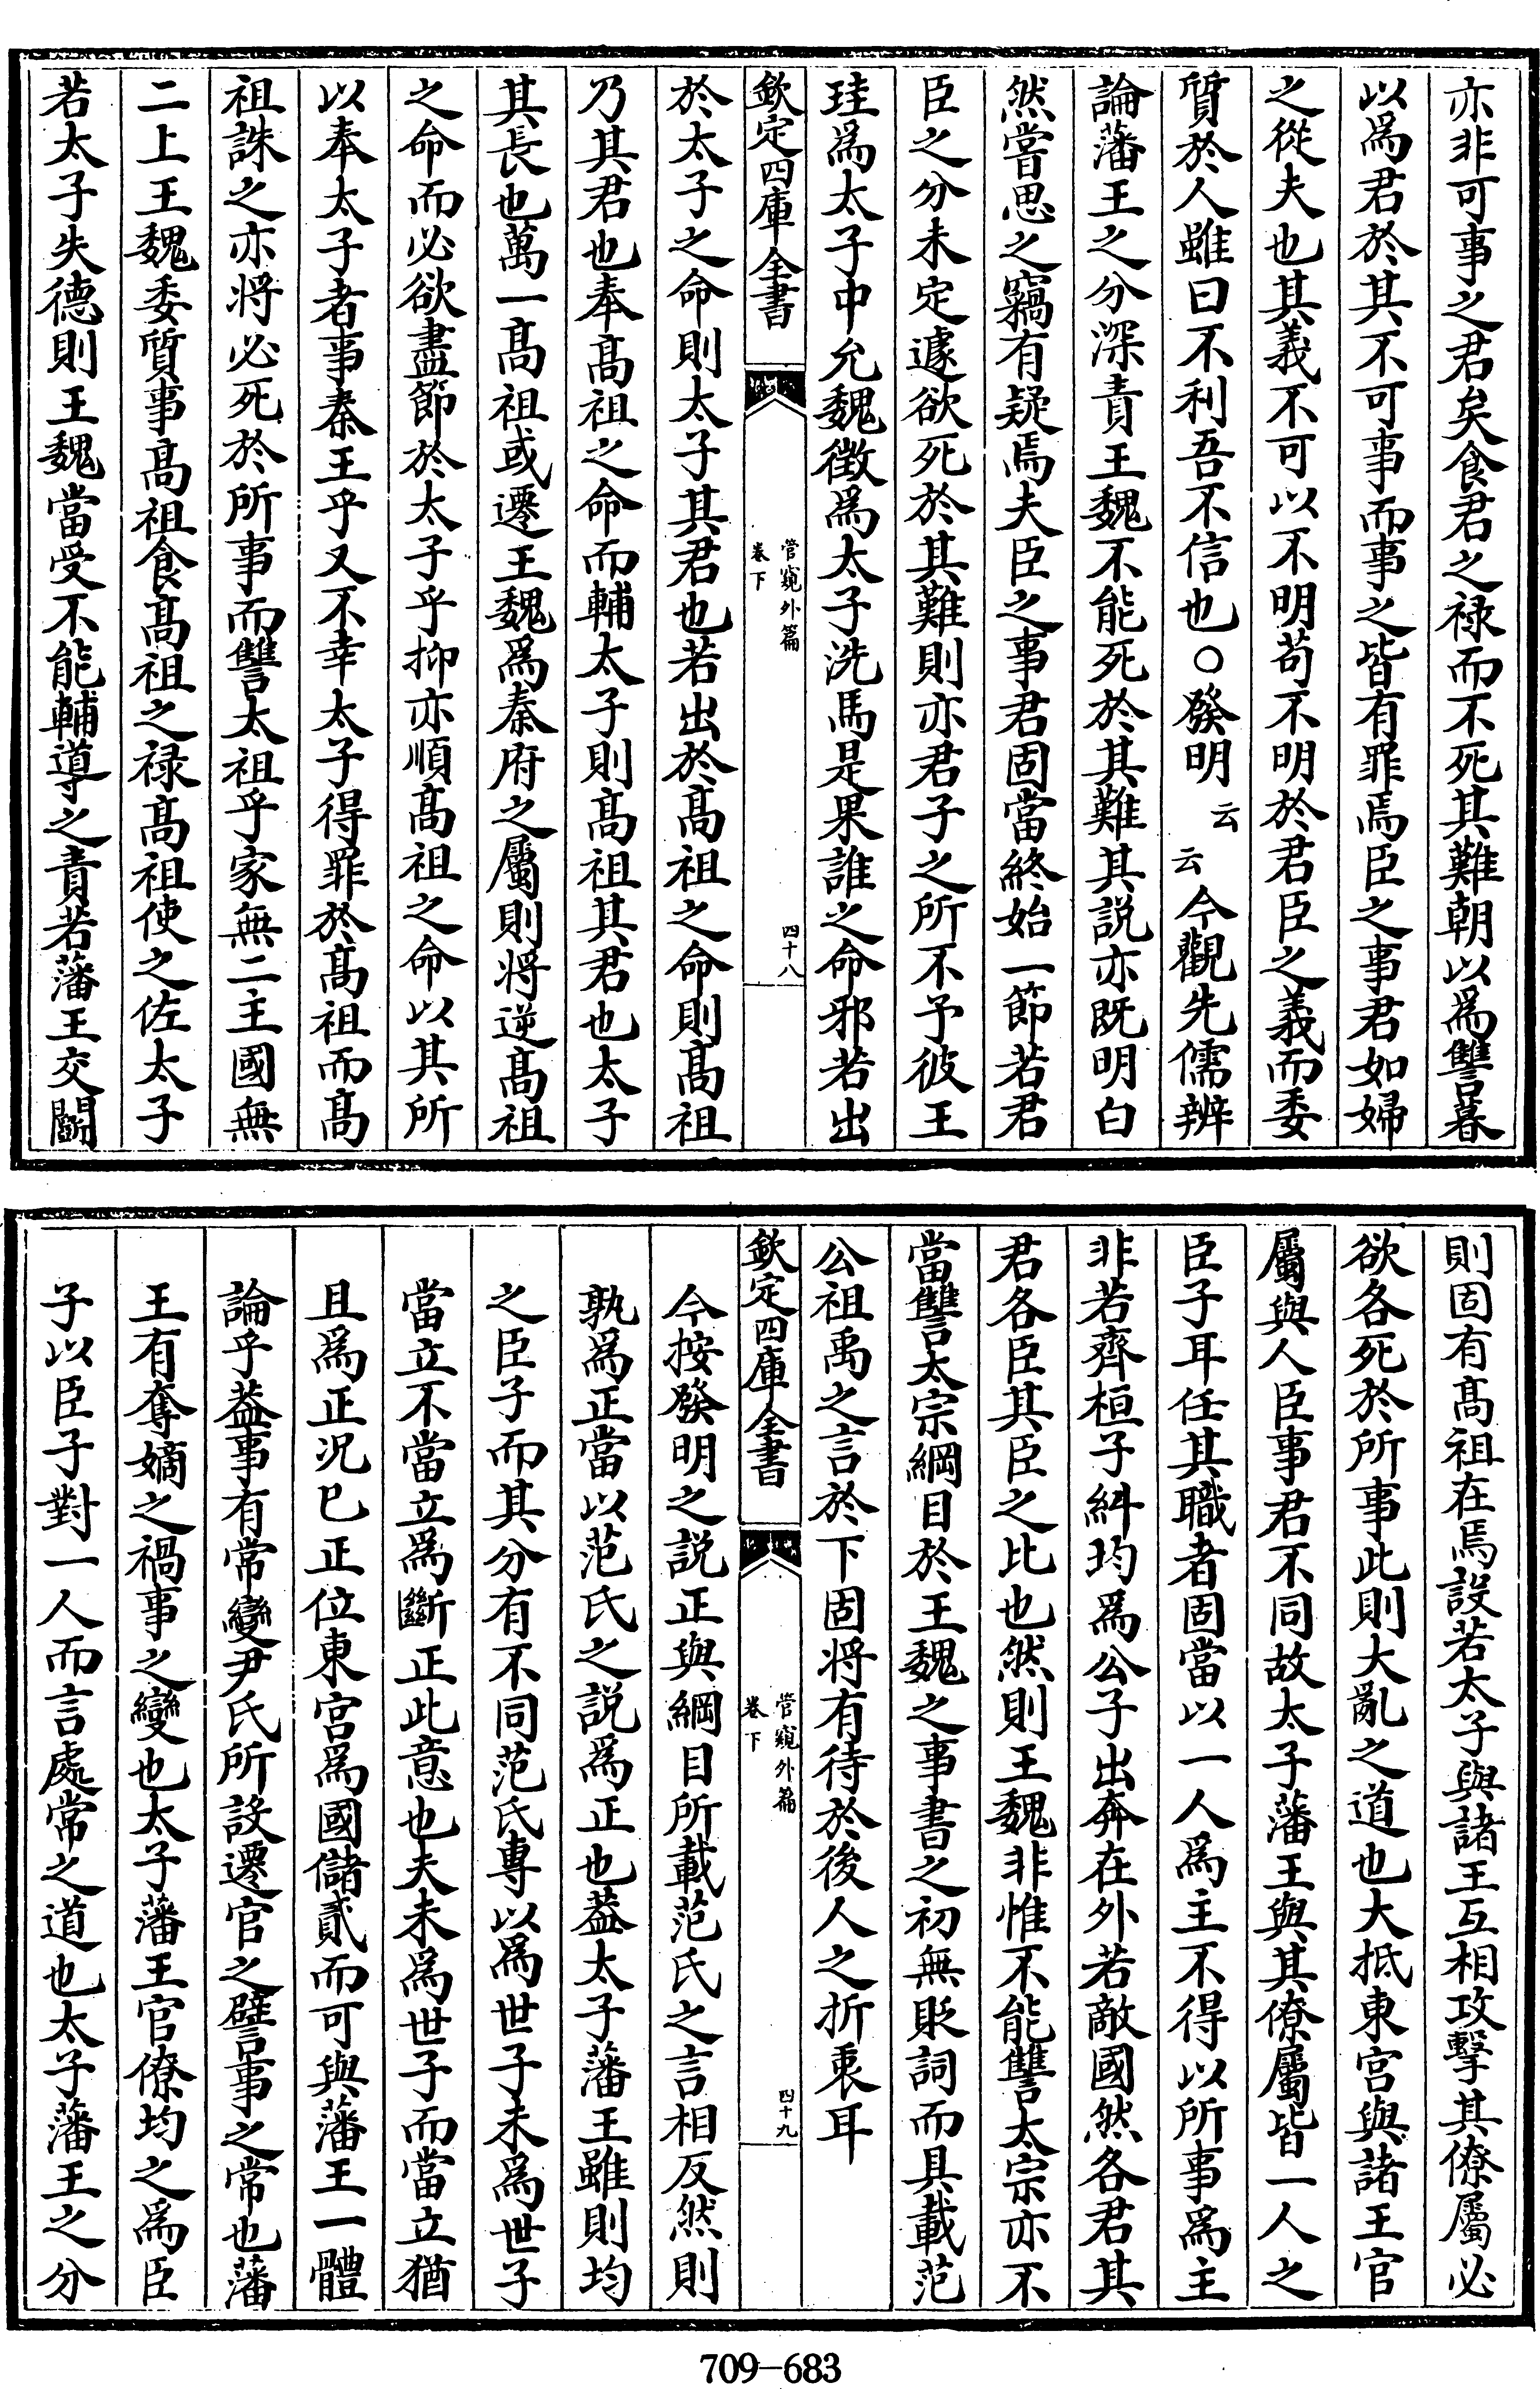 亦非可事之君矣食君之禄而不死其難朝以爲讐暮
以爲君於其不可事而事之皆有罪焉臣之事君如婦
之從夫也其義不可以不明苟不明於君臣之義而委
質於人雖曰不利吾不信也○發明云云今觀先儒辨
論藩王之分深責王魏不能死於其難其説亦既明白
然嘗思之竊有疑焉夫臣之事君固當終始一節若君
臣之分未定遽欲死於其難則亦君子之所不予彼王
珪爲太子中允魏徴爲太子洗馬是果誰之命邪若出
欽定四庫全書
管窺外篇
卷下
四十八
於太子之命則太子其君也若出於髙祖之命則髙祖
乃其君也奉髙祖之命而輔太子則髙祖其君也太子
其長也萬一髙祖或遷王魏爲秦府之屬則將逆髙祖
之命而必欲盡節於太子乎抑亦順髙祖之命以其所
以奉太子者事秦王乎又不幸太子得罪於髙祖而髙
祖誅之亦將必死於所事而讐太祖乎家無二主國無
二上王魏委質事髙祖食髙祖之禄髙祖使之佐太子
若太子失德則王魏當受不能輔導之責若藩王交鬭
則固有髙祖在焉設若太子與諸王互相攻擊其僚屬必
欲各死於所事此則大亂之道也大抵東宮與諸王官
屬與人臣事君不同故太子藩王與其僚屬皆一人之
臣子耳任其職者固當以一人爲主不得以所事爲主
非若齊桓子糾均爲公子出奔在外若敵國然各君其
君各臣其臣之比也然則王魏非惟不能讐太宗亦不
當讐太宗綱目於王魏之事書之初無貶詞而具載范
公祖禹之言於下固將有待於後人之折衷耳
欽定四庫全書
管窺外篇
卷下
四十九
今按發明之説正與綱目所載范氏之言相反然則
孰爲正當以范氏之説爲正也葢太子藩王雖則均
之臣子而其分有不同范氏專以爲世子未爲世子
當立不當立爲斷正此意也夫未爲世子而當立猶
且爲正况已正位東宮爲國儲貳而可與藩王一體
論乎葢事有常變尹氏所設遷官之譬事之常也藩
王有奪嫡之禍事之變也太子藩王官僚均之爲臣
子以臣子對一人而言處常之道也太子藩王之分
709-683